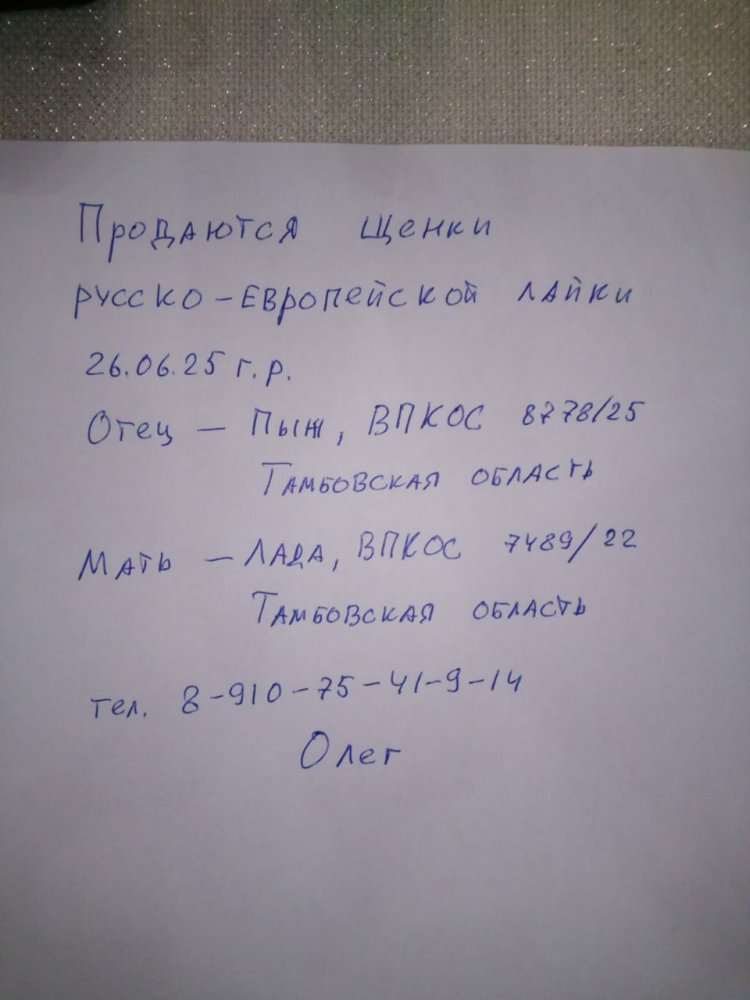 Продаются щенки
русско-европейской лайки
26.06.25 г.р.
Отец - Пыж, ВПКОС 8778/25
Тамбовская область
Мать - Лада, ВПКОС 7489/22
Тамбовская область
тел. 8-910-75-41-9-14
Олег